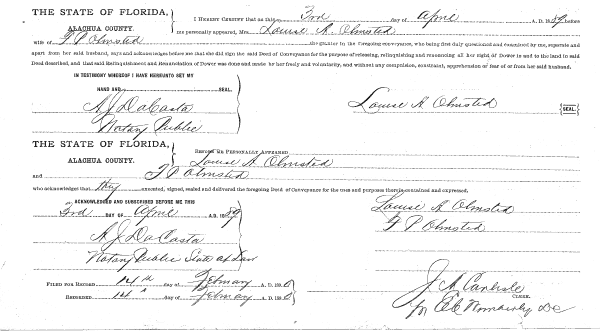 THE STATE OF FLORIDA,
ALACHUA COUNTY.
I HEREBY CERTIFY that on this 3rd day of April A. D. 1889 before
me personally appeared, Mrs. Louise A. Olmsted
wife of F P Olmsted the grantor in the foregoing conveyance, who being first duly questioned and examined by me, separate and
apart from her said husband, says and acknowledges before me that she did sign the said Deed of Conveyance for the purpose of releasing, relinquishing and renouncing all her right of Dower in and to the land in said
Deed described, and that said Relinquishment and Renunciation of Dower was done and made by her freely and voluntarily, and without any compulsion, constraint, apprehension or fear of or from her said husband.
IN TESTIMONY WHEREOF I HAVE HEREUNTO SET MY
HAND AND SEAL.
A J DaCosta
Notary Public
Louise A. Olmsted {SEAL}
THE STATE OF FLORIDA,
ALACHUA COUNTY.
BEFORE ME PERSONALLY APPEARED
Louise A. Olmsted
and F P Olmsted
who acknowledges that they executed, signed, sealed and delivered the foregoing Deed of Conveyance for the uses and purposes therein contained and expressed.
ACKNOWLEDGED AND SUBSCRIBED BEFORE ME THIS
3rd DAY OF April A. D. 1889
Louise A Olmsted
F P Olmsted
A J DaCosta
Notary Public State at Law
FILED FOR RECORD 14th day of February A. D. 1890
RECORDED 14th day of February A. D. 1890
J A Carlisle
CLERK.
for
DC